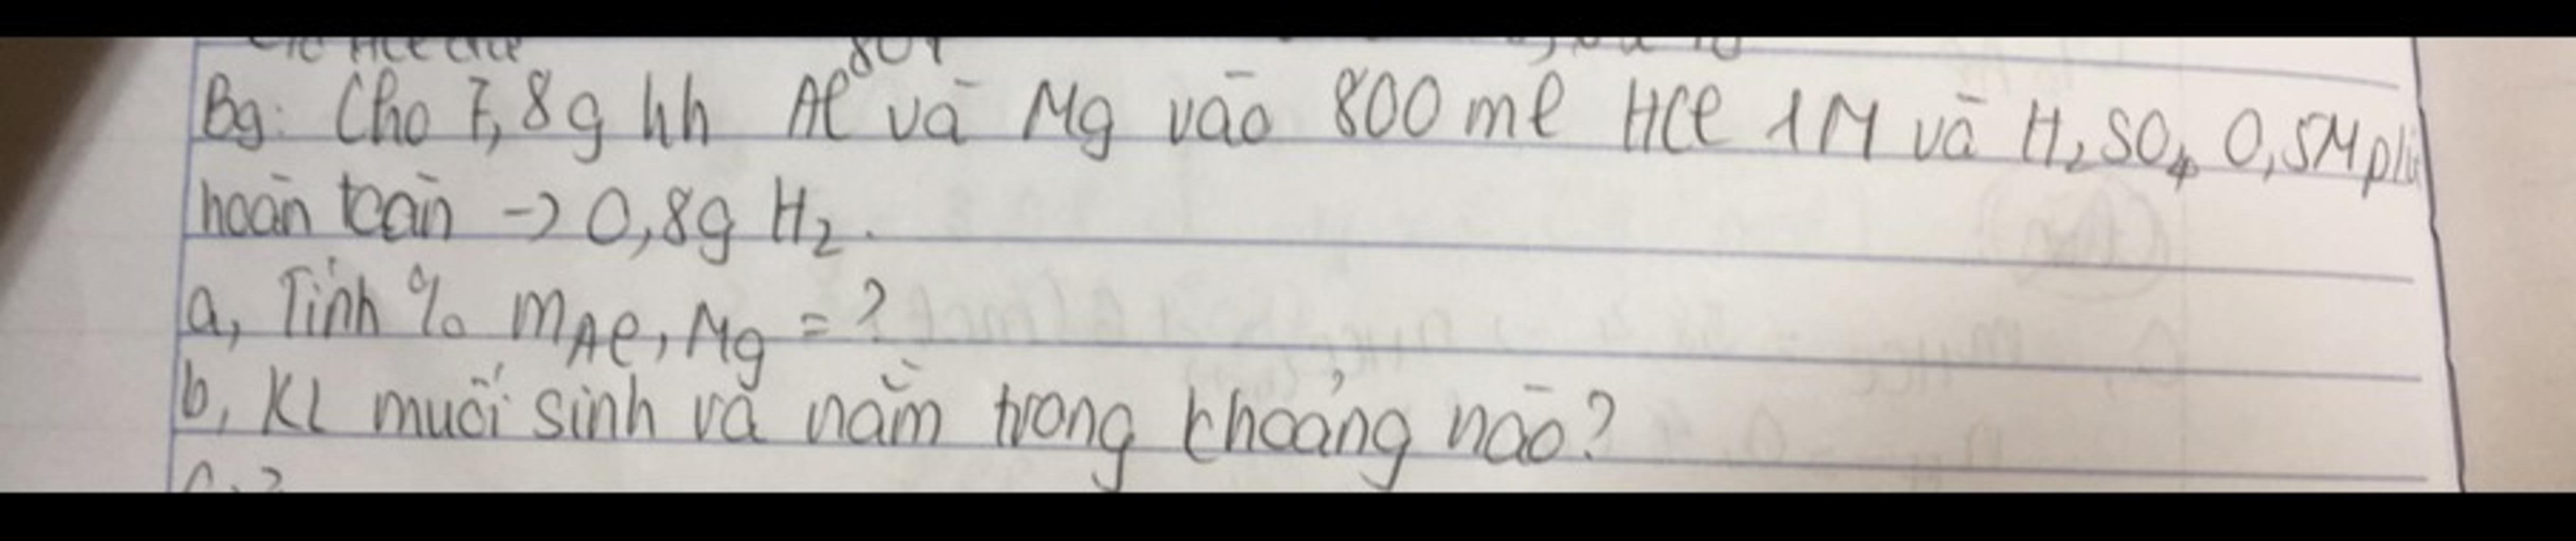 Bg: Cho 7,8g hh Al và Mg vào 800 ml HCl 1M và H₂SO₄ 0,5M pứ
hoàn toàn -> 0,8g H₂.
a, Tính % mAl, Mg = ?
b, KL muối sinh ra nằm trong khoảng nào?